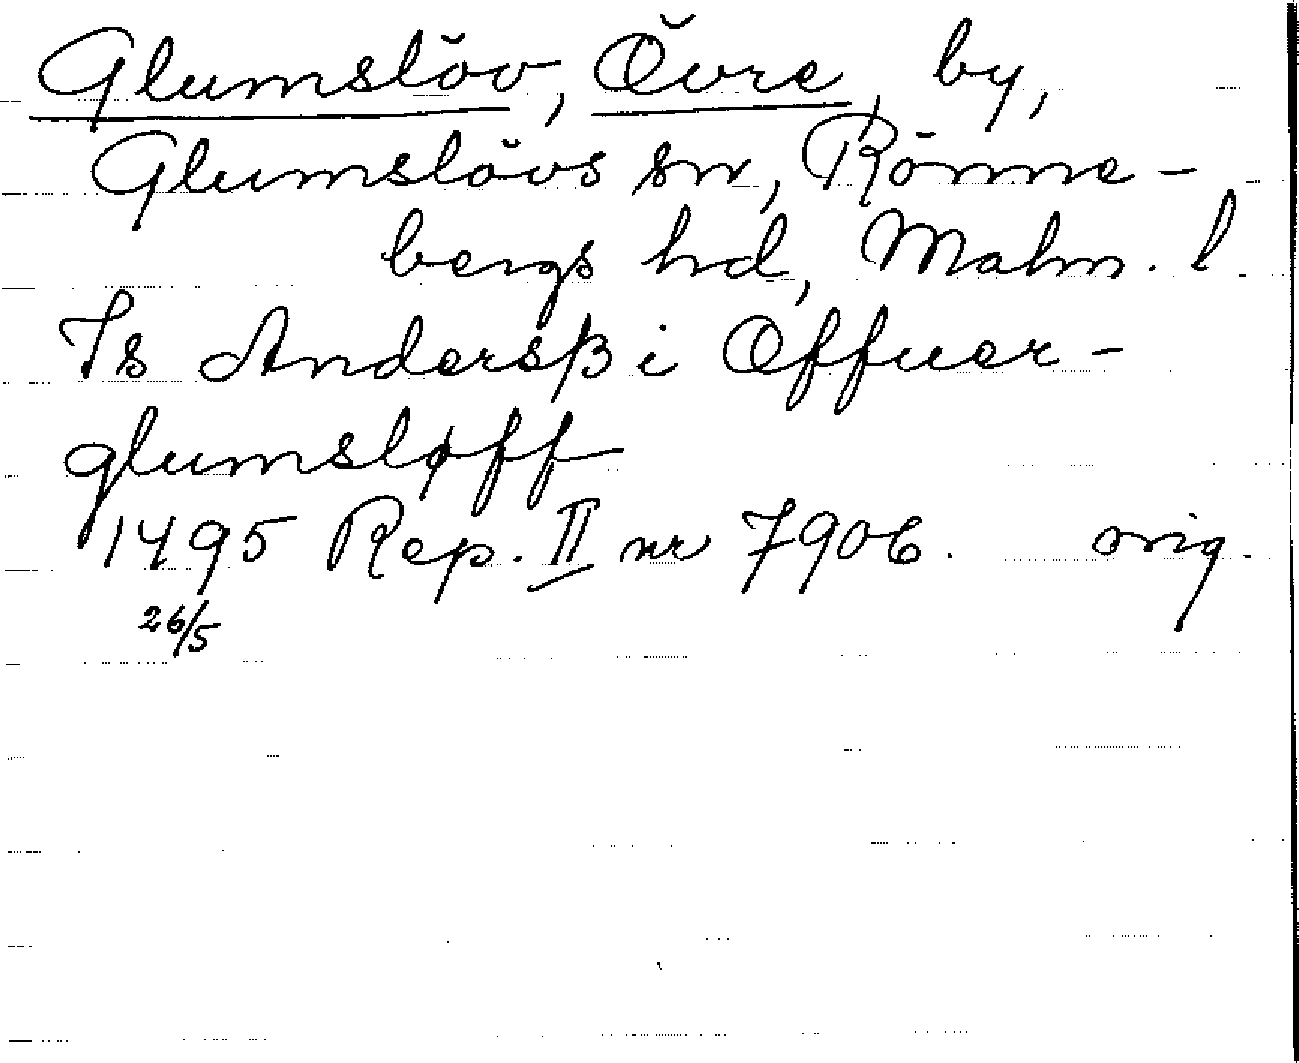 Glumslöv, Övre, by,
Glumslövs sn, Rönne-
bergs hd, Malm. l.
Is Andersß i Offuer-
glumsløff
1495 Rep. II nr 7906. orig.
26/5